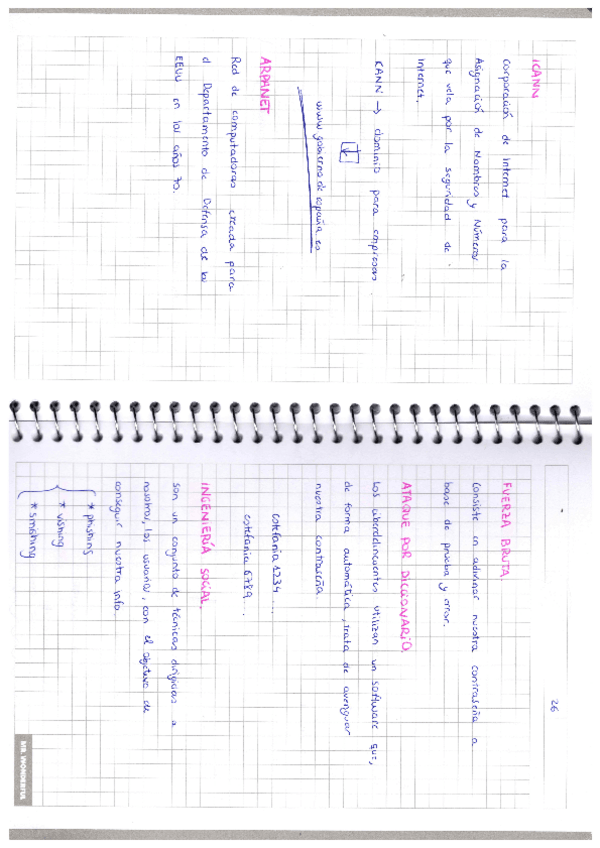 ICANN
Corporación de Internet para la
Asignación de Nombres y Números
que vela por la seguridad de
Internet.
ICANN → dominio para empresas
www.gobierno de españa.es
ARPANET
Red de computadoras creada para
el Departamento de Defensa de los
EEUU en los años 70.
26
FUERZA BRUTA.
Consiste en adivinar nuestra contraseña a
base de prueba y error.
ATAQUE POR DICCIONARIO.
Los ciberdelincuentes utilizan un software que,
de forma automática, trata de averiguar
nuestra contraseña.
estefania 1234 ....
estefania 6789 ...
INGENIERÍA SOCIAL.
son un conjunto de técnicas dirigidas a
nosotros, los usuarios, con el objetivo de
conseguir nuestra info.
* phishing
* vishing
* smishing
MR. WONDERFUL